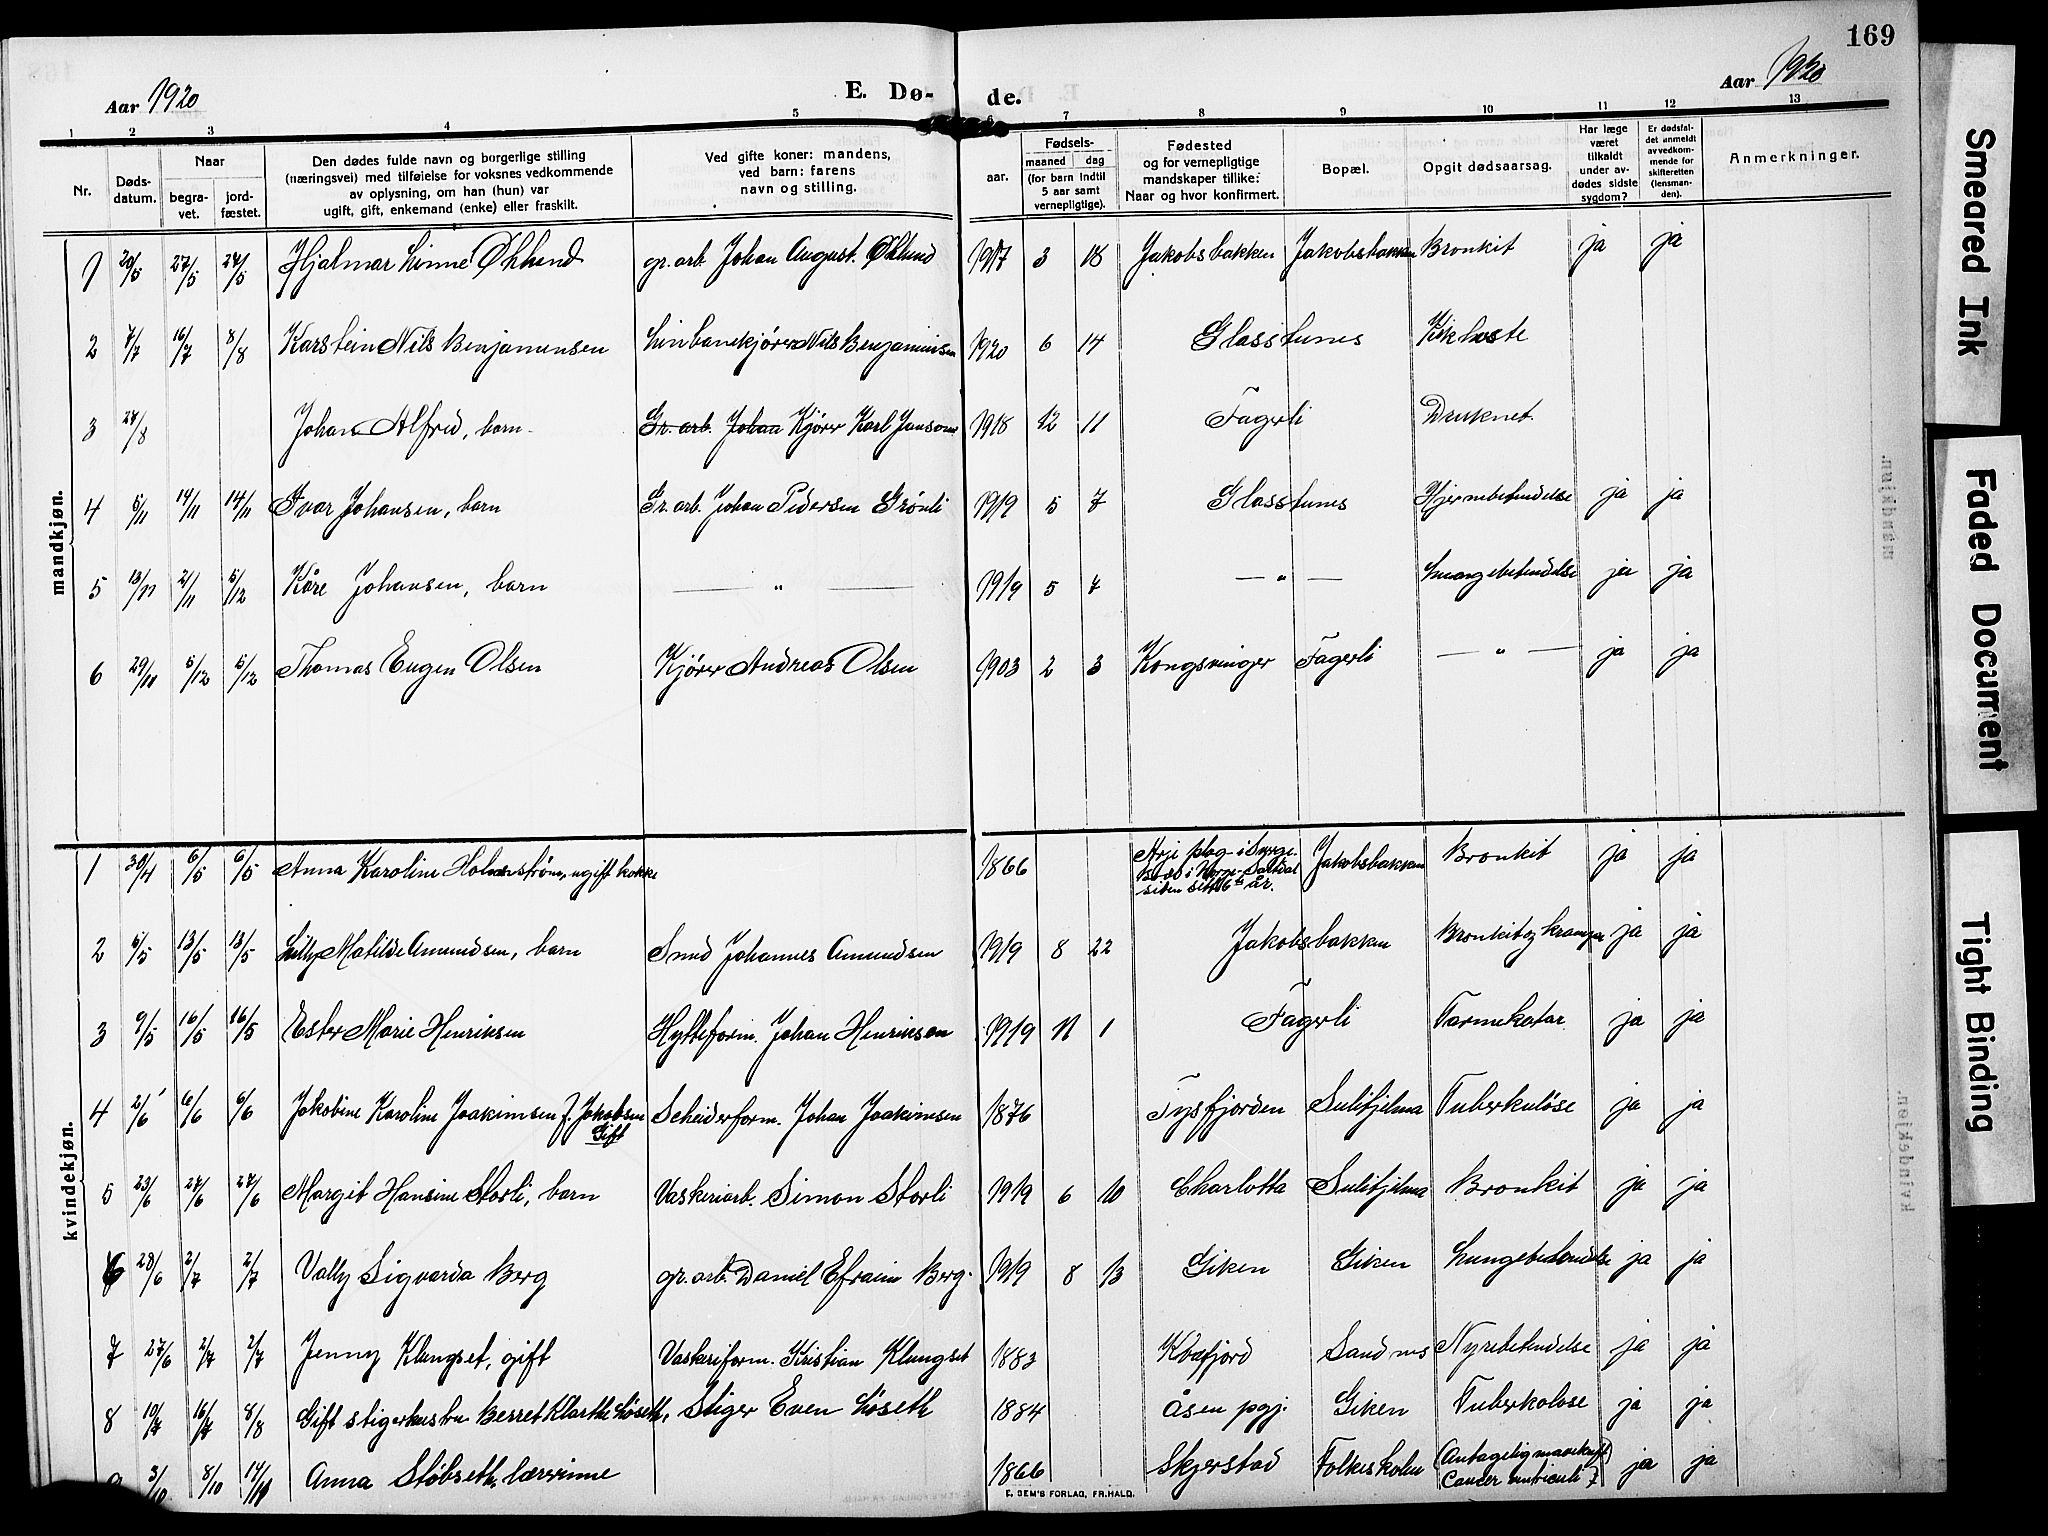 169
Aar 1920
E. Dø- de.
Aar 1920
1 2 3 4 5 6 7 8 9 10 11 12 13
Nr.
Døds-
datum.
Naar
begra-
vet.
jord-
fæstet.
Den dødes fulde navn og borgerlige stilling
(næringsvei) med tilføielse for voksnes vedkommende
av oplysning, om han (hun) var
ugift, gift, enkemand (enke) eller fraskilt.
Ved gifte koner: mandens,
ved barn: farens
navn og stilling.
Fødsels-
aar.
maaned dag
(for barn indtil
5 aar samt
vernepligtige).
Fødested
og for vernepligtige
mandskaper tillike:
Naar og hvor konfirmert.
Bopæl.
Opgit dødsaarsag.
Har læge
været
tilkaldt
under av-
dødes sidste
sygdom?
Er dødsfal-
det anmeldt
av vedkom-
mende for
skifteretten
(lensman-
den).
Anmerkninger.
mandkjøn.
1 20/5 27/5 27/5 Hjalmar Linne Øklund gr. arb. Johan August Øklund 1917 3 18 Jakobsbakken Jakobsbakken Bronkit ja ja
2 7/7 16/7 8/8 Karstein Nils Benjaminsen Linbanekjører Nils Benjaminsen 1920 6 14 Glasstunes Kikhoste
3 27/8 Johan Alfred, barn Gr. arb. Johan Kjører Karl Jansone 1918 12 11 Fagerli Druknet.
4 5/11 14/11 14/11 Ivar Johansen, barn Gr. arb. Johan Pedersen Grønli 1919 5 7 Glasstunes Hjernebetendelse ja ja
5 13/11 21/11 5/12 Kåre Johansen, barn — " — 1919 5 7 — " — Lungebetendelse ja ja
6 29/11 5/12 5/12 Thomas Eugen Olsen Kjører Andreas Olsen 1903 2 3 Kongsvinger Fagerli — " — ja ja
kvindekjøn.
1 30/4 6/5 6/5 Anna Karoline Holmstrøm, ugift kokke 1866 Arjeplog i Sverge. Jakobsbakken Bronkit ja ja
Bodd i Norge - Saltdal
siden sitt 16 de år.
2 5/5 13/5 13/5 Lilly Matilde Amundsen, barn Smed Johannes Amundsen 1919 8 22 Jakobsbakken Bronkit og kramper ja ja
3 9/5 16/5 16/5 Ester Marie Henriksen Hytteform. Johan Henrikson 1919 11 1 Fagerli Tarmekatar ja ja
4 2/6 6/6 6/6 Jakobine Karoline Joakimsen f. Jakobsen Scheiderform. Johan Joakimsen 1876 Tysfjorden Sulitjelma Tuberkuløse ja ja
Gift
5 23/6 27/6 27/6 Margit Hansine Storli, barn Vaskeriarb. Simon Storli 1919 6 10 Charlotta Sulitjelma Bronkit ja ja
6 28/6 2/7 2/7 Vally Sigvarda Berg gr. arb. Daniel Efraim Berg. 1919 8 13 Giken Giken Lungebetendelse ja ja
7 27/6 2/7 2/7 Jenny Klungset, gift Vaskeriform. Kristian Klungset 1883 Kvæfjord Sandnes Nyrebetendelse ja ja
8 10/7 16/7 8/8 Gift stigerhustru Berret Marthe Løseth, Stiger Even Løseth 1884 Åsen pgj. Giken Tuberkolose ja ja
9 3/10 8/10 14/11 Anna Støbseth, lærerinne 1866 Skjerstad Folkeskolen (Antagelig mavekreft) ja ja
Cancer ventriculi ?
E. SEM'S FORLAG, FR.HALD.
Smeared Ink
Faded Document
Tight Binding